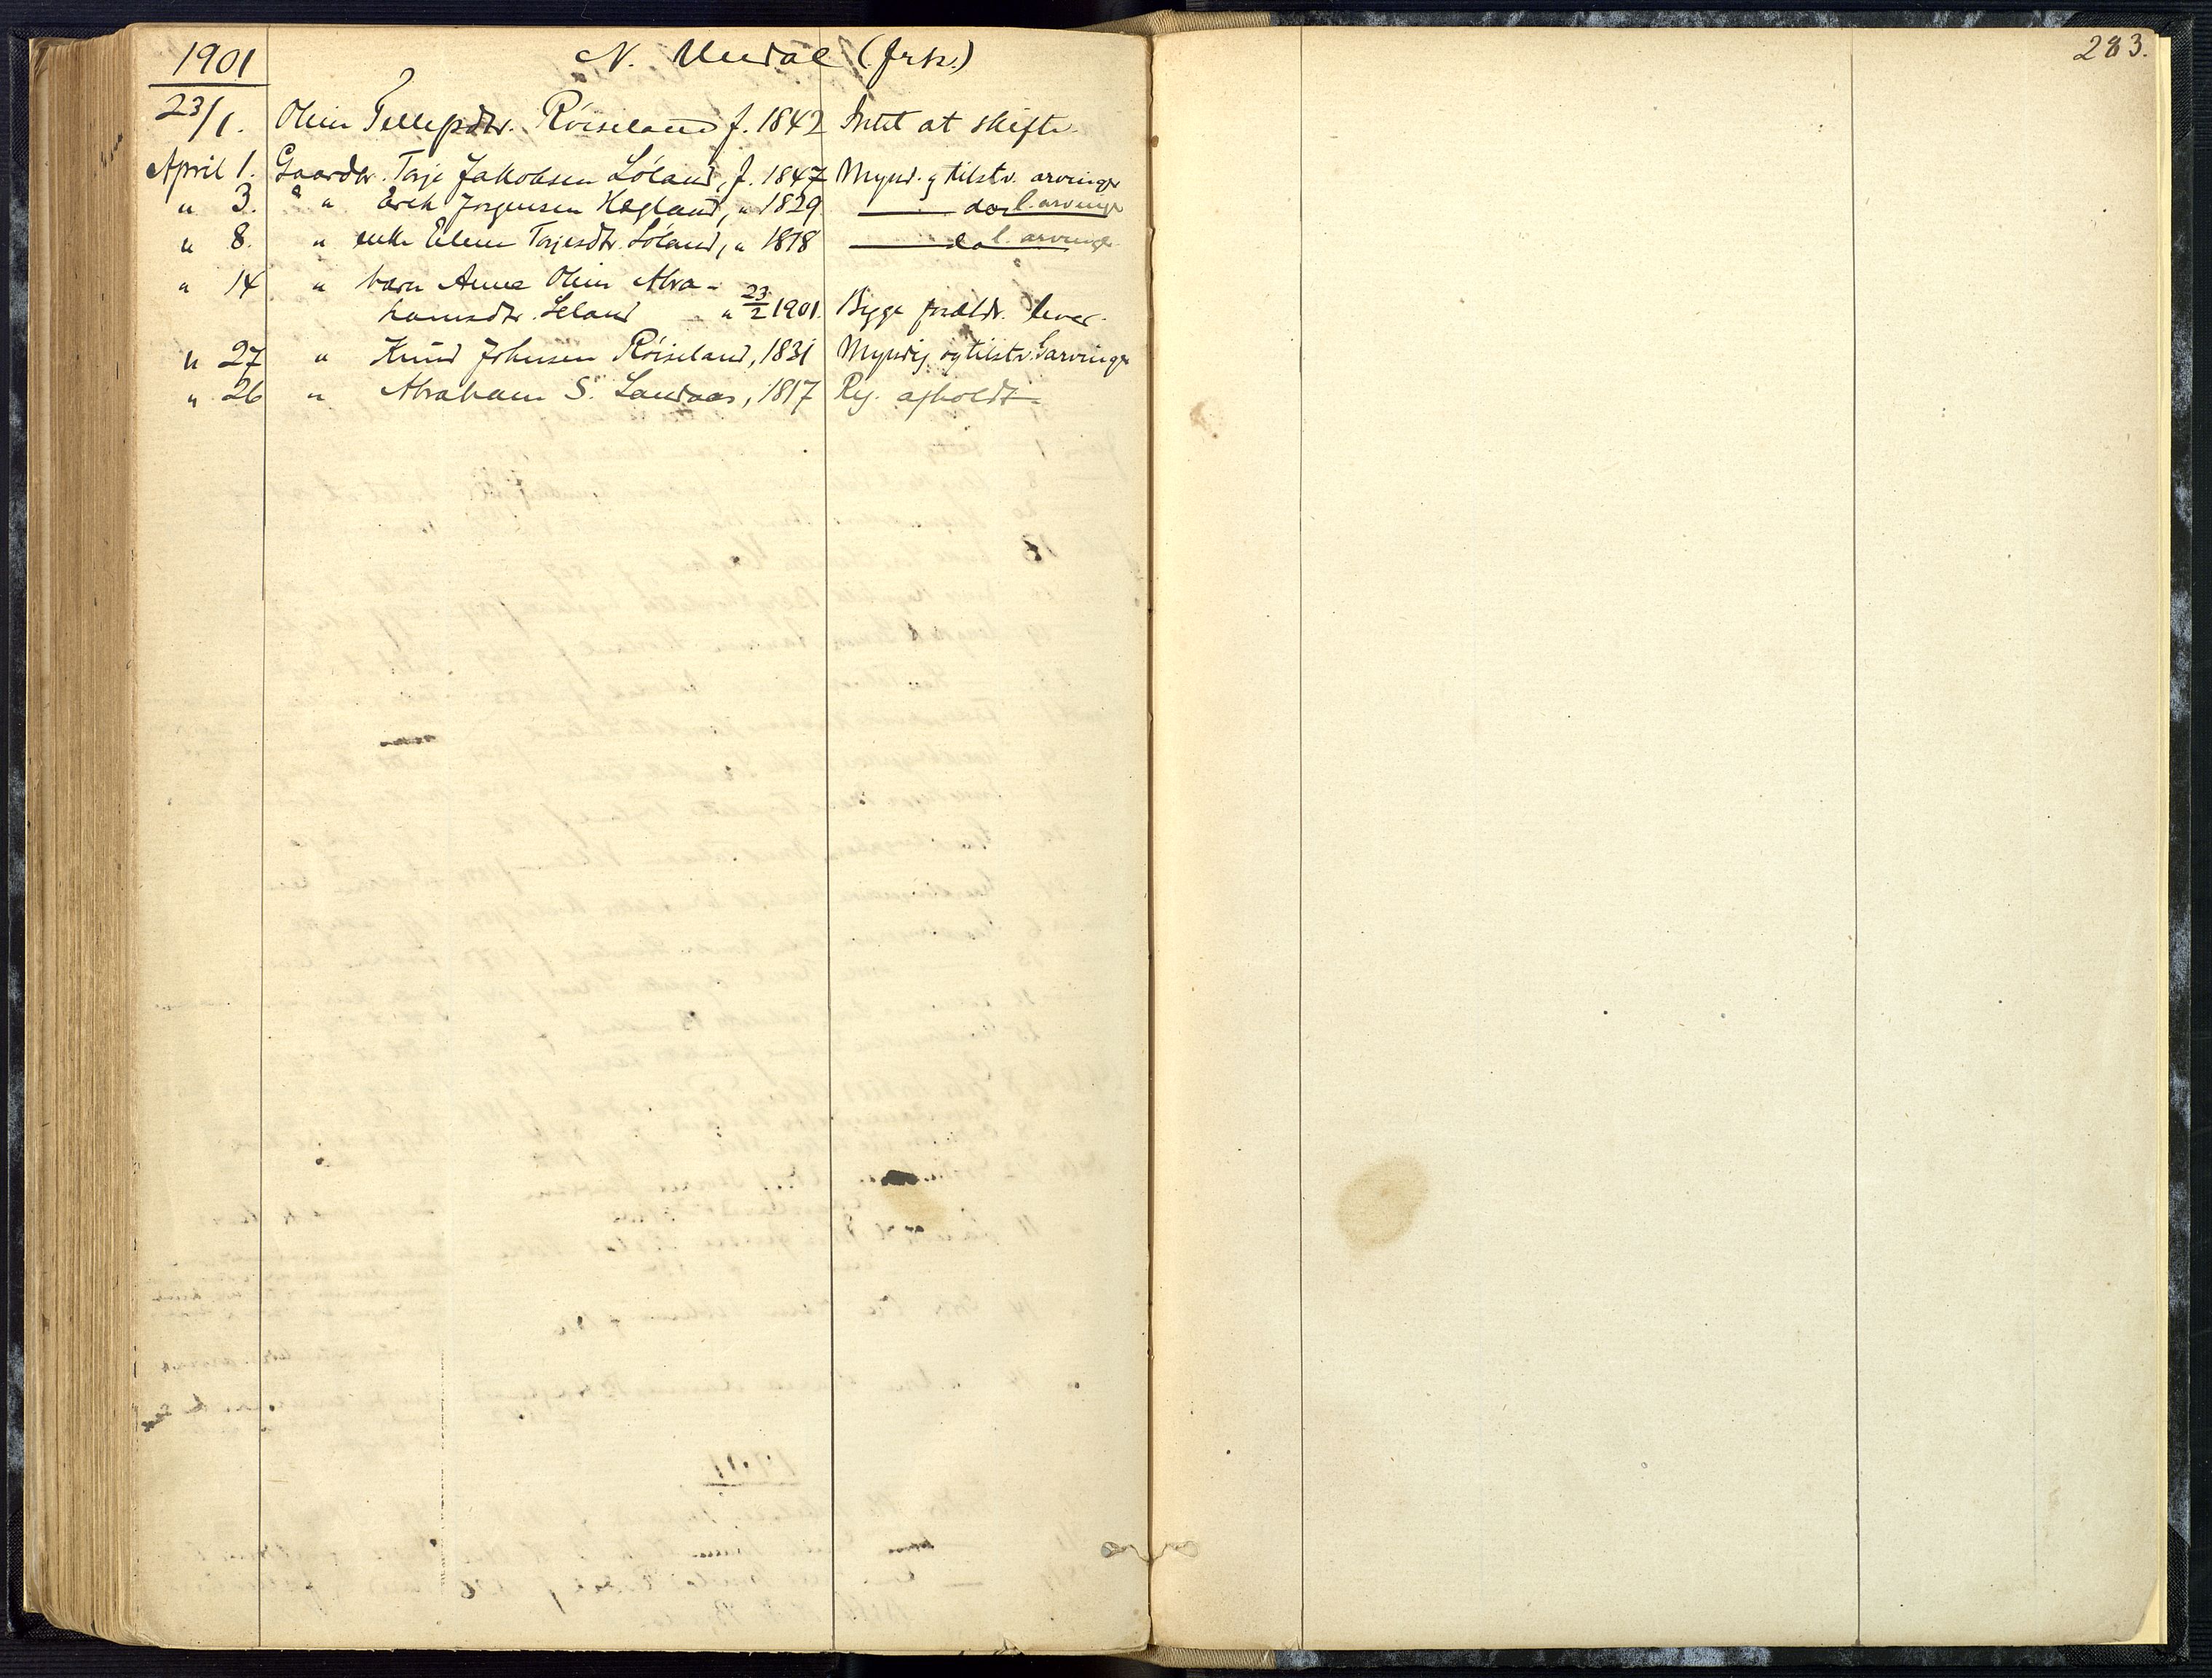 283.
1901
N. Undal (frk.)
23/1. Oline Tellefsdtr. Röiseland f. 1842 Intet at skifte.
April 1. Gaardbr. Terje Jakobsen Löland, f. 1847 Mynd. og tilstv. arvinger
" 3. " " Erik Jörgensen Høgland, " 1829 — do. l. arvinger
" 8. " enke Elene Terjesdtr. Löland, " 1818 — do l. arvinger
" 14 " barn Anne Oline Abra-
hamsdtr. Leland " 23/2 1901. Begge forældr. lever.
" 27 " Knud Johnsen Röiseland, 1831 Myndig og tilstv. l. arvinger
" 26 " Abraham S. Landaas, 1817 Reg. afholdt